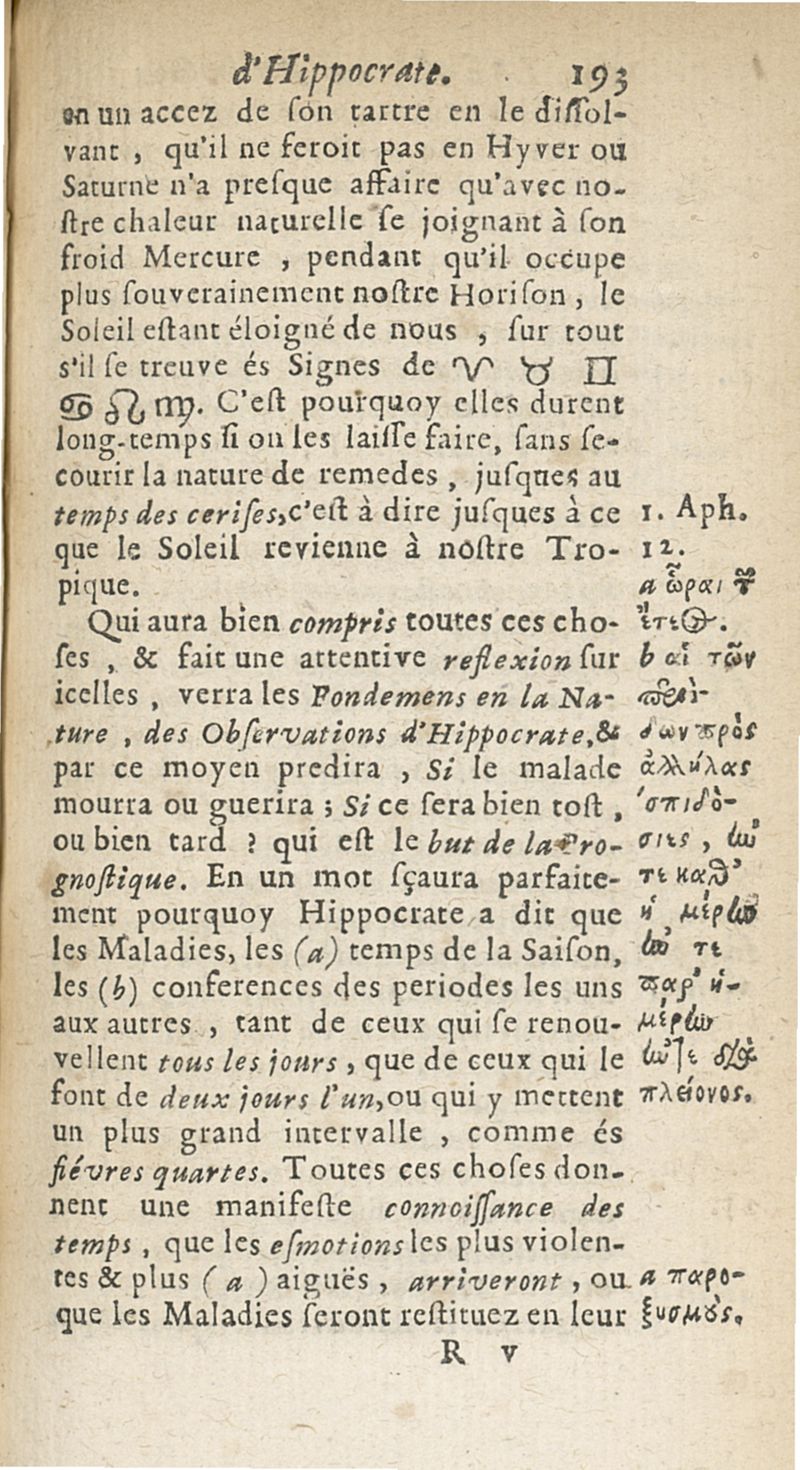 d'Hippocrate. 193
en un accez de ſon tartre en le diſſol-
vant , qu'il ne feroit pas en Hyver ou
Saturne n'a preſque affaire qu'avec no-
ſtre chaleur naturelle ſe joignant à ſon
froid Mercure , pendant qu'il occupe
plus ſouverainement noſtre Horiſon , le
Soleil eſtant éloigné de nous , ſur tout
s'il ſe treuve és Signes de ♈ ♉ ♊
♋ ♌ ♍. C'eſt pourquoy elles durent
long-temps ſi on les laiſſe faire, ſans ſe-
courir la nature de remedes , juſques au
temps des ceriſes, c'eſt à dire juſques à ce
que le Soleil revienne à noſtre Tro-
pique.
Qui aura bien compris toutes ces cho-
ſes , & fait une attentive reflexion ſur
icelles , verra les Fondemens en la Na-
ture , des Obſervations d'Hippocrate, &
par ce moyen predira , Si le malade
mourra ou guerira ; Si ce ſera bien toſt ,
ou bien tard ? qui eſt le but de la Pro-
gnoſtique. En un mot ſçaura parfaite-
ment pourquoy Hippocrate a dit que
les Maladies, les (a) temps de la Saiſon,
les (b) conferences des periodes les uns
aux autres , tant de ceux qui ſe renou-
vellent tous les jours , que de ceux qui le
font de deux jours l'un, ou qui y mettent
un plus grand intervalle , comme és
fiévres quartes. Toutes ces choſes don-
nent une manifeſte connoiſſance des
temps , que les eſmotions les plus violen-
tes & plus ( a ) aiguës , arriveront , ou
que les Maladies ſeront reſtituez en leur
R v
1. Aph.
12.
a ὧραι τοῦ
ἔτεος.
b αἱ τῶν
περιό-
δων πρὸς
ἀλλήλας
ἐπιδό-
σιες , ἤν
τε καθ'
ἡμέρην
ἤν τε
παρ' ἡ-
μέρην
ἤν τε διὰ
πλείονος.
a παρο-
ξυσμούς.